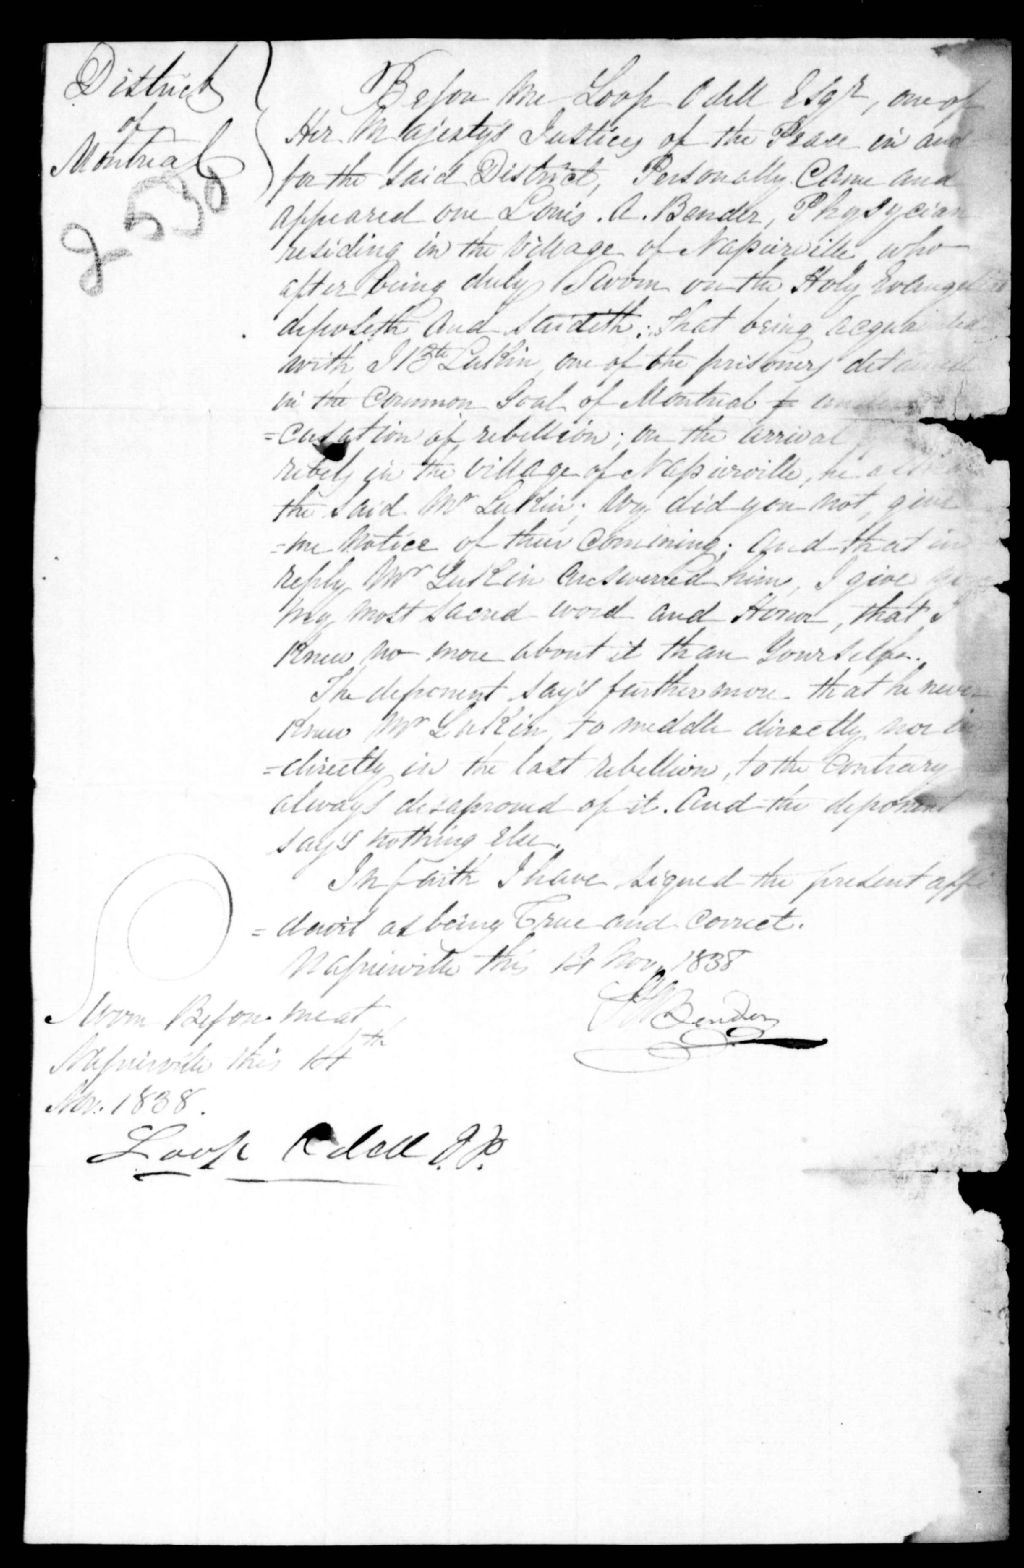 District
of
Montreal
2538
Before Me Loop Odell Esqr, one of
Her Majesty's Justices of the Peace in and
for the said District, Personally Came and
appeared one Louis. A. Bender, Physycian
residing in the Village of Napierville, who
after being duly Sworn on the Holy Evangelist
deposeth and saideth; that being acquainted
with J Bte Lukin, one of the prisoners detained
in the Common Goal of Montreal
=cusation of rebellion; on the arrival
rebels in the Village of Napierville, he asked
the said Mr Lukin; Wy did you not, give
=me Notice of their Comining; and that in
reply Mr Lukin answerred him, I give you
my most sacred word and Honor, that I
Knew no more about it than Yourselfe.
The deponent say's further more that he never
Knew Mr Lukin, to meddle directly nor in
=directly in the last rebellion, to the Contrary
always desaproved of it. And the deponent
say's nothing else.
In faith I have signed the present affi
=davit as being True and correct.
Napierville this 14 Nov. 1838
Bender
Sworn Before me at
Napierville this 14th
Nov. 1838.
Loop Odell J.P.